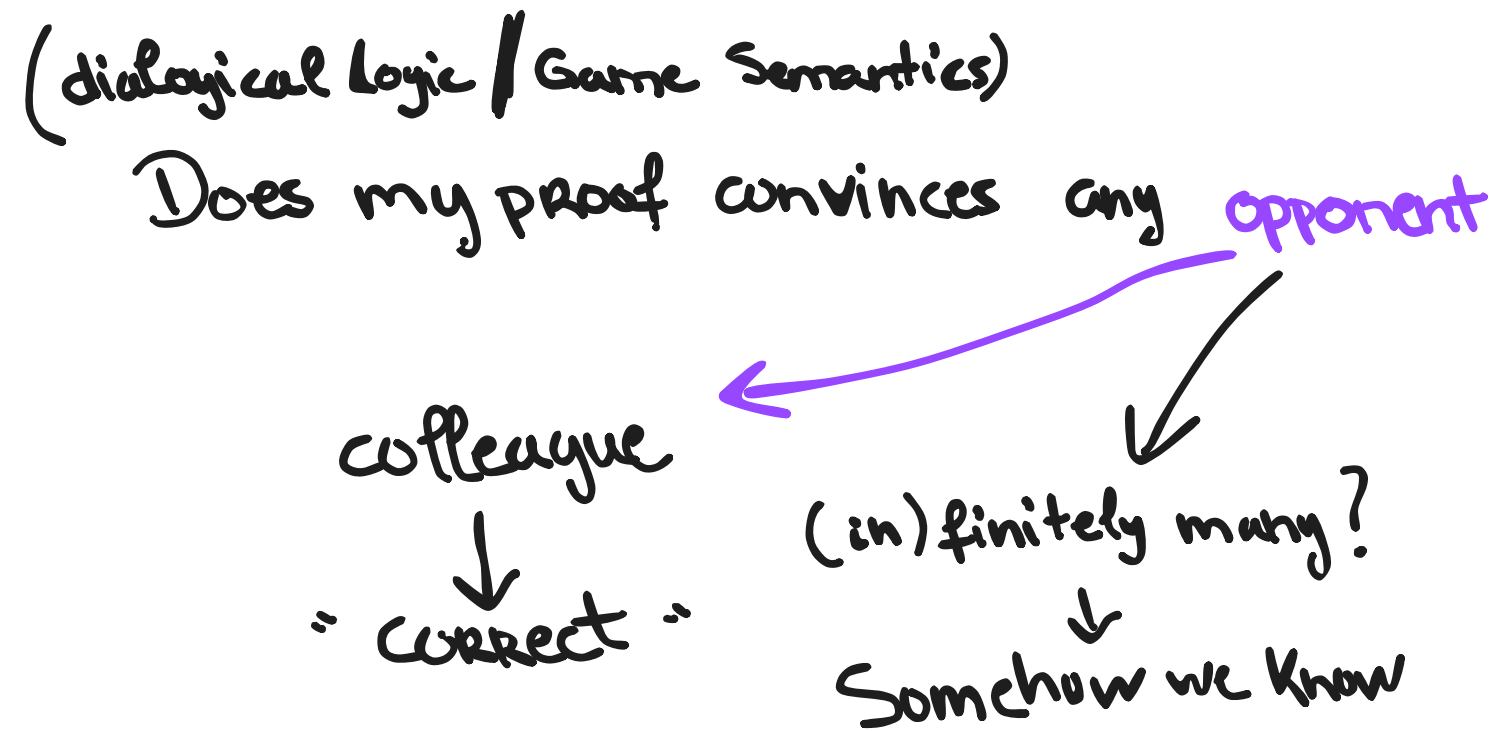 (dialogical logic / Game Semantics)
Does my proof convinces any opponent
colleague
(in)finitely many?
"correct"
Somehow we know